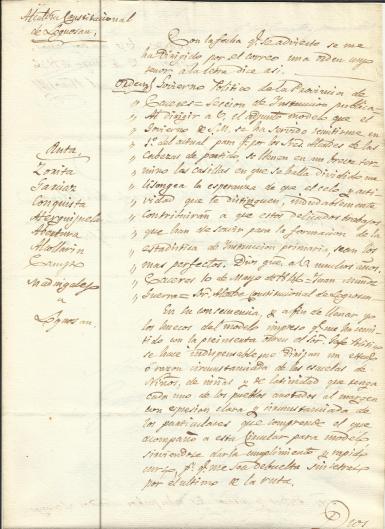 Alcaldia Constitucional
de Logrosan.
Ruta
Zorita
Garciaz
Conquista
Herguijuela
Alcollarin
Campo
Madrigalejo
a
Logrosan.
Con la fecha q.e se advierte se me
ha dirigido por el correo una orden cuyo
tenor a la letra dice asi.
Orden Govierno Politico de la Provincia de
" Caceres = Seccion de Instruccion publica =
" Al dirigir a V. el adjunto modelo que el
" Govierno de S.M. se ha servido remitirme en
" del actual para q.e los Sres. Alcaldes de las
" Cabezas de partido se llenen en un breve ter-
" mino las casillas en que se halla dividido me
" lisongea la esperanza de que el celo y acti-
" vidad que le distinguen, indudablemente
" contribuirán a que estos delicados trabajos,
" que han de servir para la formacion de la
" estadistica de Instruccion primaria, sean los
" mas perfectos. Dios gue. a V. muchos años.
" Caceres 10 de Mayo de 1846. Juan Muñiz
" Guerra = Sor. Alcalde Constitucional de Logrosan
En su consecuencia, y a fin de llenar yo
los huecos del modelo impreso q.e me ha remi-
tido con la preinserta orden el Sor. Gefe Politico
se hace indispensable me dirijan un estado
o razon circunstanciada de las escuelas de
Niños, de niñas y de latinidad que tenga
cada uno de los pueblos anotados al margen
con espresion clara y circunstanciada de
los particulares que comprende el que
acompaño a esta Circular para modelo
sirviendose darla cumplimiento y rapido
curso p.a q.e me sea debuelta sin retraso
por el ultimo de la ruta.
Dios